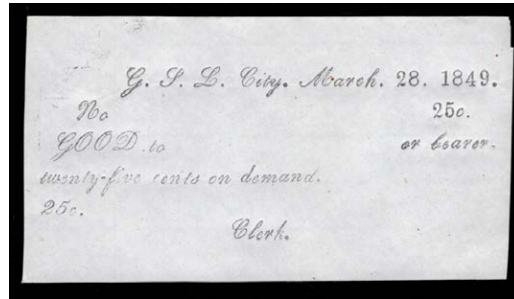 G. S. L. City. March. 28. 1849.
No 25c.
GOOD to or bearer.
twenty-five cents on demand.
25c.
Clerk.